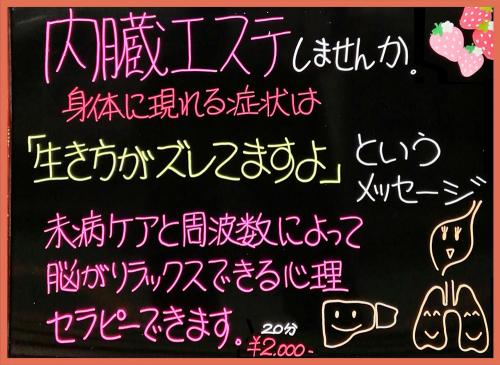 内臓エステしませんか。
身体に現れる症状は
「生き方がズレてますよ」という
メッセージ
未病ケアと周波数によって
脳がリラックスできる心理
セラピーできます。
20分
¥2.000-